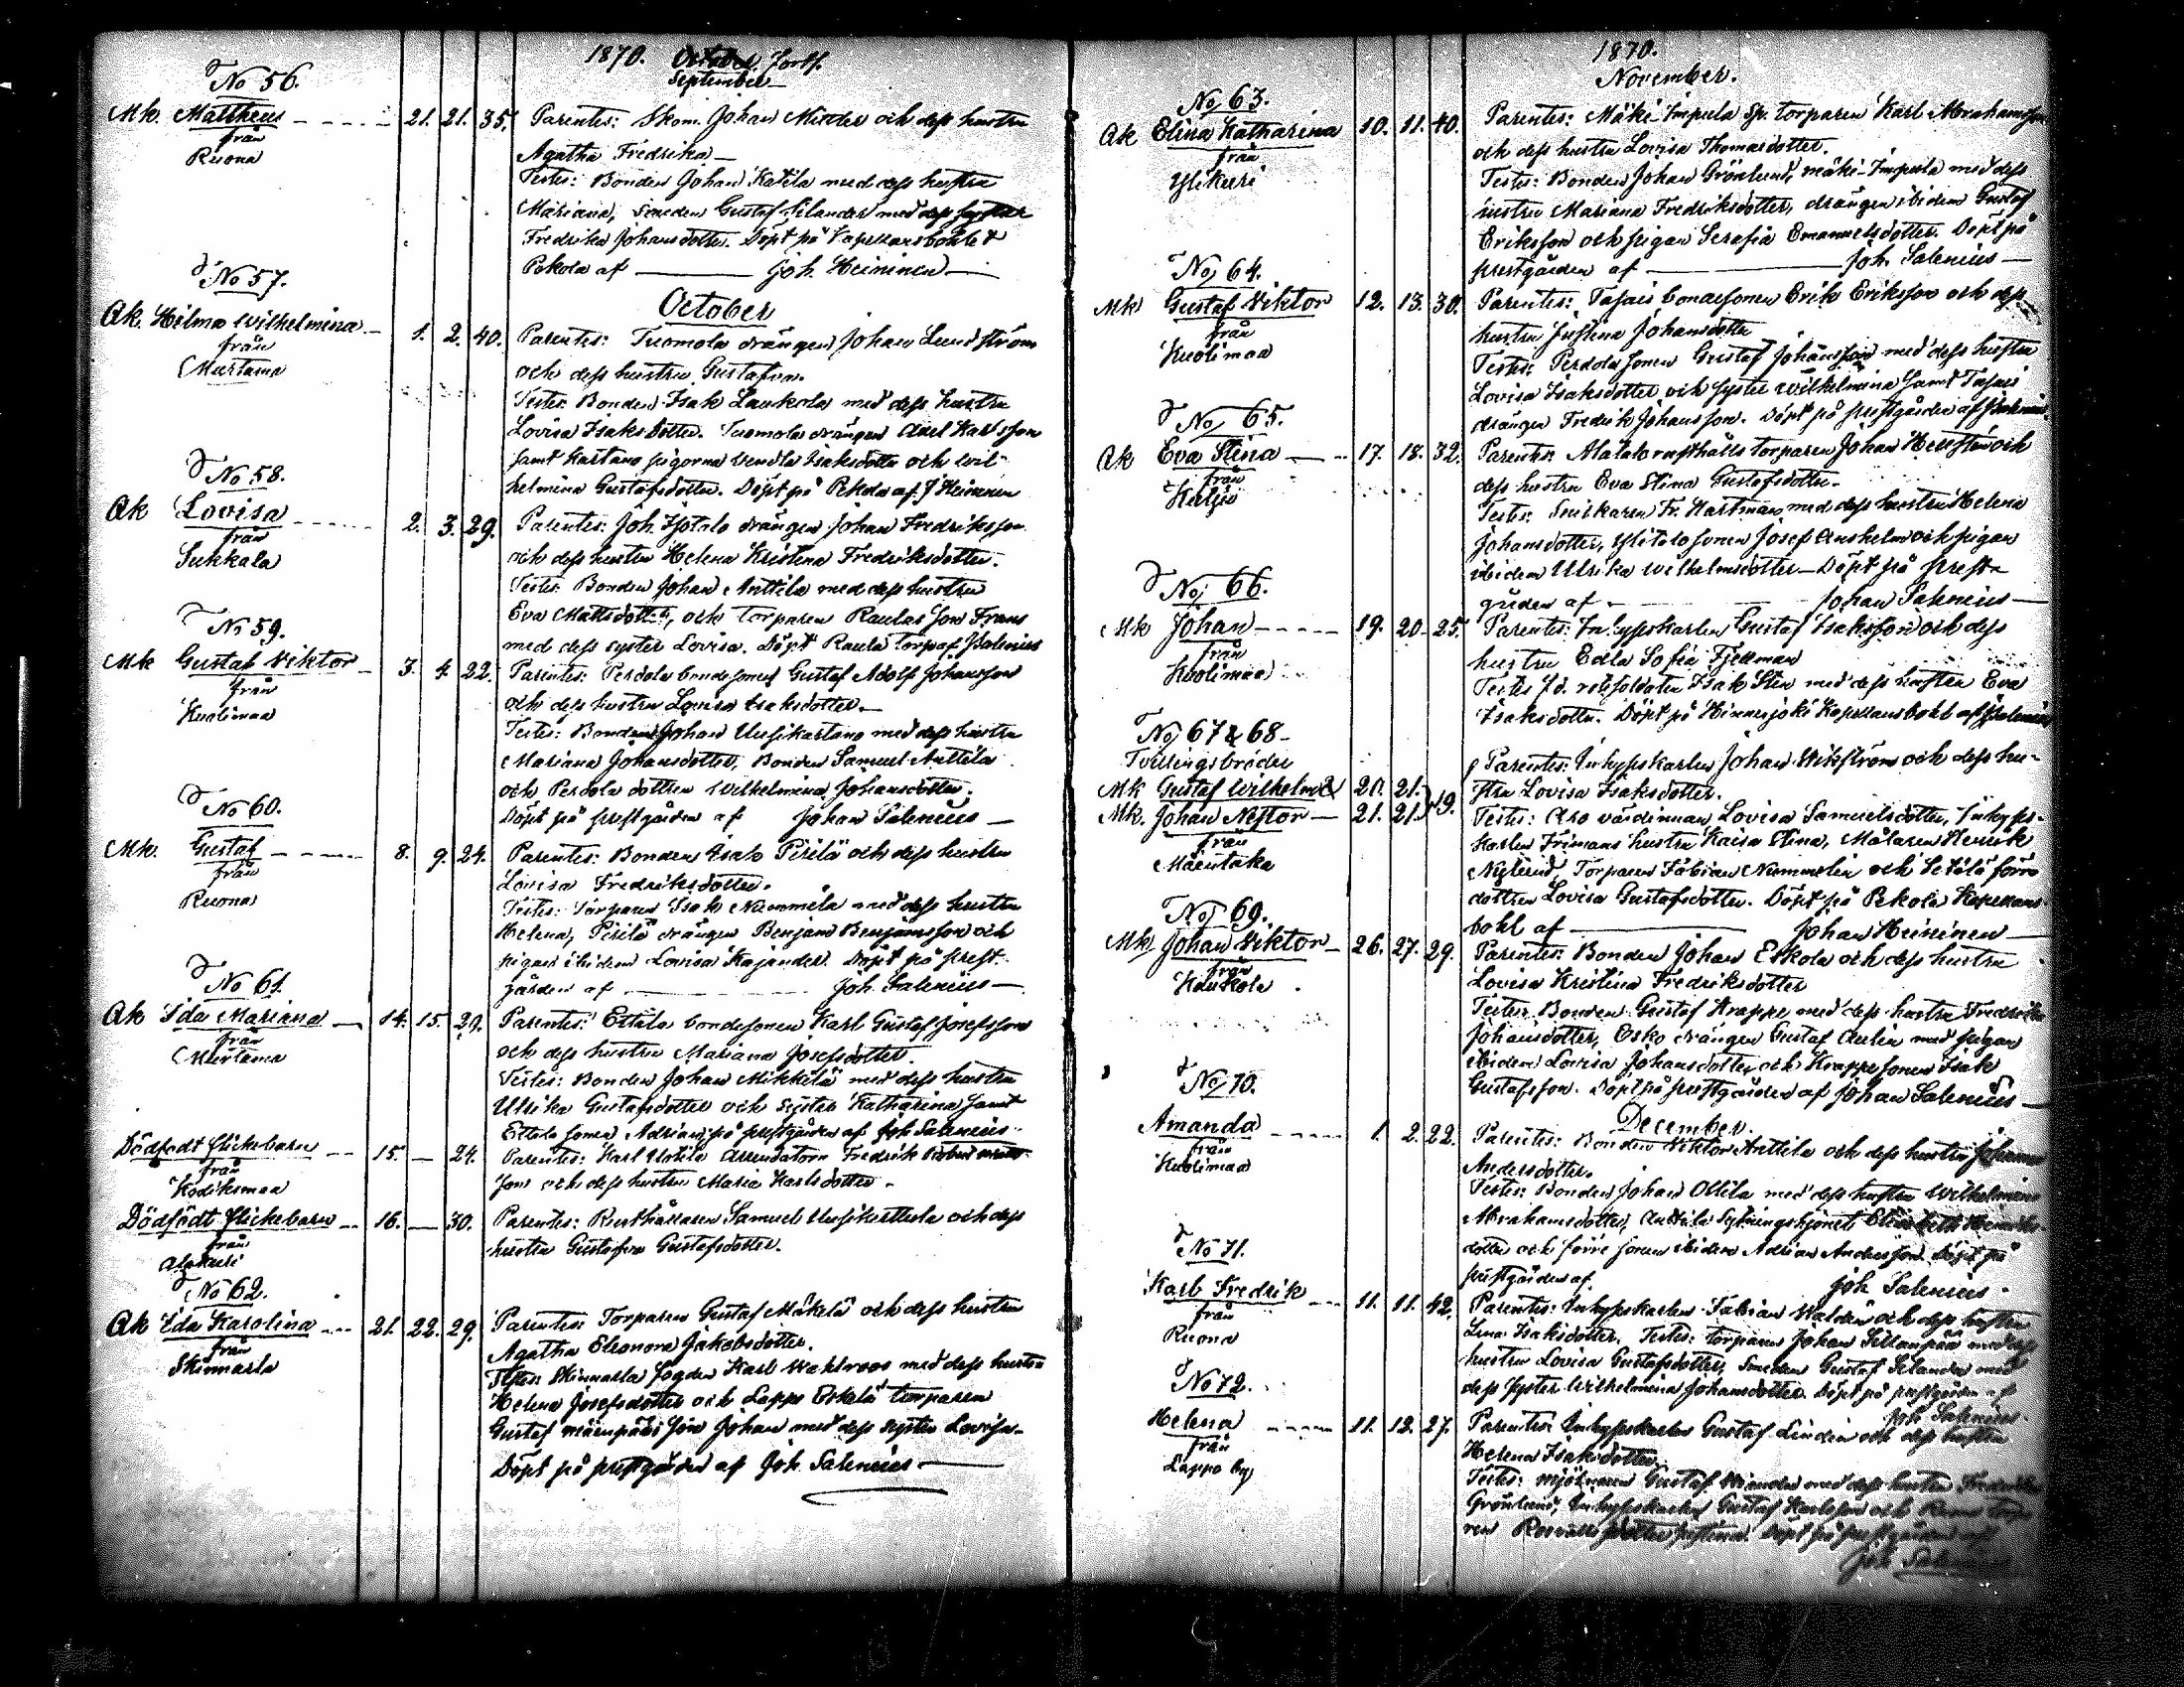 1870. October Fortf.
September
No 56.
Mk. Mattheus 21. 21. 35. Parentes: Skom. Johan Minder och dess hustru
från
Ruona
Agatha Fredrika
Testes: Bonden Johan Katila med dess hustru
Mariana, Smeden Gustaf Silander med dess syster
Fredrika Johansdotter. Döpt på Kapellansbohlet
Pekola af Joh. Heininen
October
No 57.
Ak. Hilma Wilhelmina 1. 2. 40. Parentes: Tuomola drängen Johan Lundström
från
Murtama
och dess hustru Gustafva.
Testes: Bonden Isak Laukola med dess hustru
Lovisa Isaksdotter. Tuomola drängen Axel Karlsson
samt Kartano pigorna Wendla Isaksdotter och Wil-
helmina Gustafsdotter. Döpt på Pekola af J Heininen
No 58.
Ak Lovisa 2. 3. 29. Parentes: Joh. Isotalo drängen Johan Fredriksson
från
Sukkala
och dess hustru Helena Kristina Fredriksdotter.
Testes: Bonden Johan Anttila med dess hustru
Eva Mattsdotter, och torparen Raulas son Frans
med dess syster Lovisa. Döpt Raula torp af JSalenius
No 59.
Mk Gustaf Viktor 3. 4. 22. Parentes: Perdola bondesonen Gustaf Adolf Johansson
från
Kuolimaa
och dess hustru Lovisa Isaksdotter.
Testes: Bonden Johan Uusikartano med dess hustru
Mariana Johansdotter, Bonden Samuel Anttila
och Perdola dottren Wilhelmina Johansdotter.
Döpt på prestgården af Johan Salenius
No 60.
Mk. Gustaf 8. 9. 24. Parentes: Bonden Isak Pirilä och dess hustru
från
Ruona
Lovisa Fredriksdotter.
Testes: Torparen Isak Nummela med dess hustru
Helena, Pirilä drängen Benjam Benjamsson och
pigan ibidem Lovisa Kajander. Döpt på prest-
gården af Joh. Salenius
No 61.
Ak Ida Mariana 14. 15. 29. Parentes: Ettala bondesonen Karl Gustaf Josefsson
från
Murtama
och dess hustru Mariana Josefsdotter.
Testes: Bonden Johan Mikkilä med dess hustru
Ulrika Gustafsdotter och syster Katharina samt
Ettala sonen Adrian; på prestgården af Joh Salenius
Dödfödt flickebarn 15. — 24. Parentes: Karl Uotila Arrendatorn Fredrik
från
Kodiksmaa
son och dess hustru Maria Karlsdotter.
Dödfödt flickebarn 16. — 30. Parentes: Rusthållaren Samuel Uusikerttula och dess
från
Alakuri
hustru Gustafva Gustafsdotter.
No 62.
Ak Ida Karolina 21. 22. 29. Parentes: Torparen Gustaf Mäkelä och dess hustru
från
Skinnarla
Agatha Eleonora Jakobsdotter.
Testes: Skinnarla Fogden Karl Wahlroos med dess hustru
Helena Josefsdotter och Lappo Eskelä torparen
Gustaf Mäenpääs son Johan med dess syster Lovisa.
Döpt på prestgården af Joh. Salenius
1870.
November.
No 63.
Ak Elina Katharina 10. 11. 40. Parentes: Mäki-Impula Sp: torparen Karl Abrahamsson
från
Ylikuri
och dess hustru Lovisa Thomasdotter.
Testes: Bonden Johan Grönlund, Mäki-Impula med dess
hustru Mariana Fredriksdotter, drängen ibidem Gustaf
Eriksson och pigan Serafia Emanuelsdotter. Döpt på
prestgården af Joh. Salenius
No 64.
Mk Gustaf Viktor 12. 13. 30. Parentes: Tasais bondesonen Erik Eriksson och dess
från
Kuolimaa
hustru Justina Johansdotter
Testes: Perdola sonen Gustaf Johansson med dess hustru
Lovisa Isaksdotter och syster Wilhelmina samt Tasais
drängen Fredrik Johansson. Döpt på prestgården af JSalenius
No 65.
Ak Eva Stina 17. 18. 32. Parentes: Alatalo rusthålls torparen Johan Hellstén och
från
Kaljo
dess hustru Eva Stina Gustafsdotter.
Testes: Snickaren Fr. Hartman med dess hustru Helena
Johansdotter, Ylitalo sonen Josef Anshelm och pigan
ibidem Ulrika Wilhelmsdotter. Döpt på prest-
gården af Johan Salenius
No 66.
Mk Johan 19. 20. 25. Parentes: Inhyseskarlen Gustaf Isaksson och dess
från
Kuolimaa
hustru Edla Sofia Fjellman
Testes: f.d. rotesoldaten Isak Sten med dess hustru Eva
Isaksdotter. Döpt på Hinnerjoki Kapellansbohl af JSalenius
No 67 & 68
Tvillingsbröder
Mk Gustaf Wilhelm & 20. 21.
Mk. Johan Nestor 21. 21. 19.
från
Mäentaka
Parentes: Inhyseskarlen Johan Wikström och dess hu-
stru Lovisa Isaksdotter.
Testes: Aro värdinnan Lovisa Samuelsdotter, Inhyses-
karlen Frimans hustru Kaisa Stina, Målaren Henrik
Nylund, Torparen Fabian Nummelin och Setälä förra
dottren Lovisa Gustafsdotter. Döpt på Pekola Kapellans-
bohl af Johan Heininen
No 69.
Mk. Johan Viktor 26. 27. 29. Parentes: Bonden Johan Eskola och dess hustru
från
Haukola
Lovisa Kristina Fredriksdotter
Testes: Bonden Gustaf Krappe med dess hustru Fredrika
Johansdotter, Esko drängen Gustaf Aulin med pigan
ibidem Lovisa Johansdotter och Krappe sonen Isak
Gustafsson. Döpt på prestgården af Johan Salenius
December.
No 70.
Amanda 1. 2. 22. Parentes: Bonden Viktor Anttila och dess hustru Johanna
från
Kuolimaa
Andersdotter.
Testes: Bonden Johan Ollila med dess hustru Wilhelmina
Abrahamsdotter, Anttila Sytningshjonet Elisabeth Henriks-
dotter och förre sonen ibidem Adrian Andersson. Döpt på
prestgården af Joh Salenius.
No 71.
Karl Fredrik 11. 11. 42. Parentes: Inhyseskarlen Fabian Waldén och dess hustru
från
Ruona
Lena Isaksdotter. Testes: torparen Johan Sillanpää med dess
hustru Lovisa Gustafsdotter, Smeden Gustaf Silander med
dess syster Wilhelmina Johansdotter. Döpt på prestgården af
Joh Salenius.
No 72.
Helena 11. 12. 27. Parentes: Inhyseskarlen Gustaf Lindén och dess hustru
från
Lappo by
Helena Isaksdotter.
Testes: mjölnaren Gustaf med dess hustru Fredrika
Grönlund, Inhyseskarlen Gustaf Karlsson och
Justina. Döpt på prestgården af
Joh Salenius